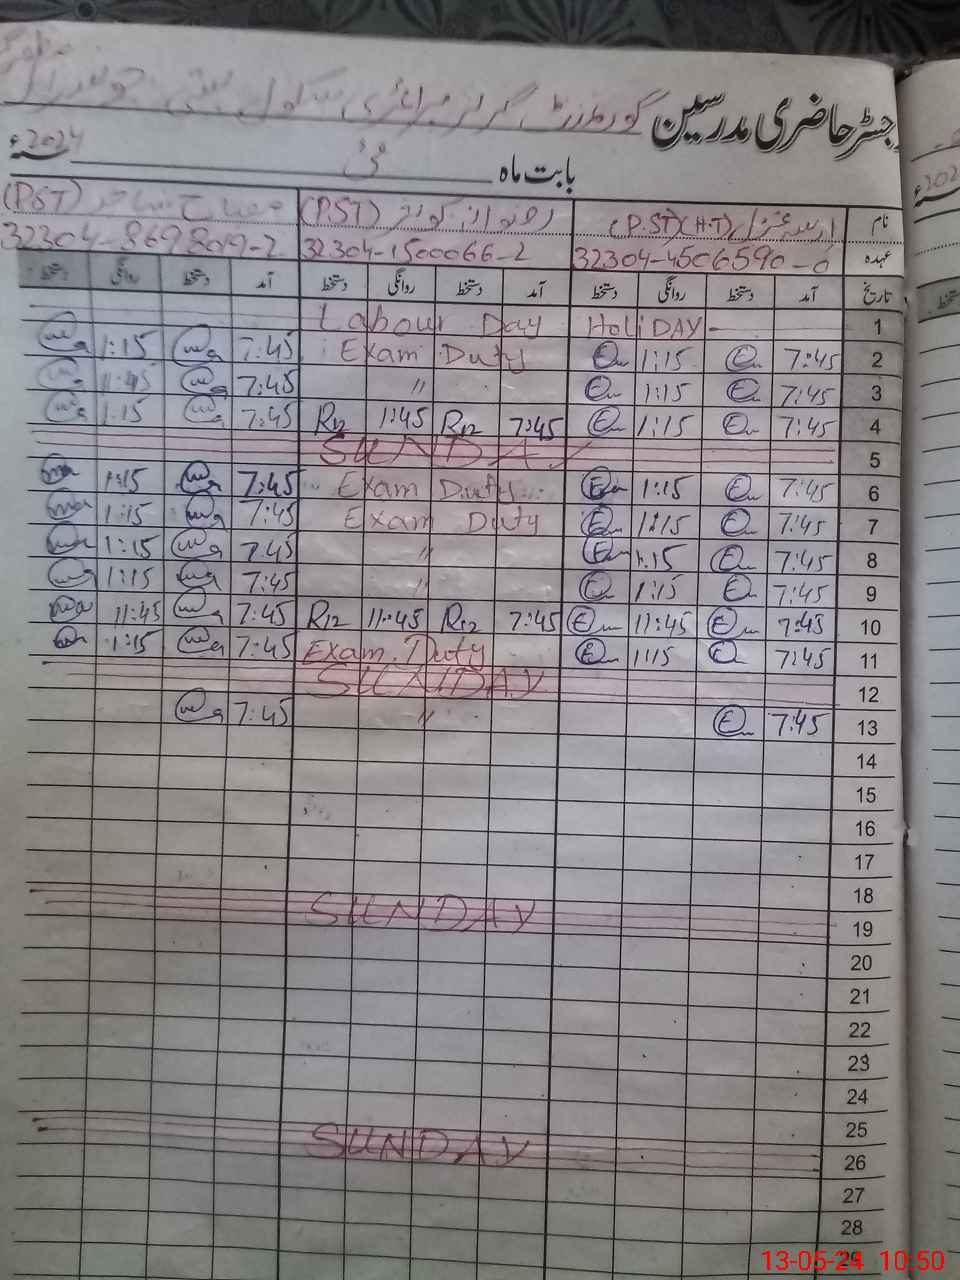 رجسٹر حاضری مدرسین گورنمنٹ گرلز پرائمری سکول بستی
بابت ماہ مئی 2024ء
نام (P.ST)(H.T) رضوانہ کوثر (P.ST) (P.ST)
عہدہ 32304-4506590-0 32304-1500066-2 32304-8698019-2
تاریخ آمد دستخط روانگی دستخط آمد دستخط روانگی دستخط آمد دستخط روانگی دستخط
1 Labour Day HoliDAY-
2 7:45 1:15 Exam Duty 7:45 1:15
3 7:45 1:15 〃 7:45 11:45
4 7:45 1:15 7:45 R12 1:45 R12 7:45 1:15
5 SUNDAY
6 7:45 1:15 Exam Duty 7:45 1:15
7 7:45 1:15 Exam Duty 7:45 1:15
8 7:45 1:15 〃 7:45 1:15
9 7:45 1:15 〃 7:45 1:15
10 7:45 11:45 7:45 R12 11:45 R12 7:45 11:45
11 7:45 1:15 Exam Duty 7:45 1:15
12 SUNDAY
13 7:45 〃 7:45
14
15
16
17
18
19 SUNDAY
20
21
22
23
24
25
26 SUNDAY
27
28
29
13-05-24 10:50